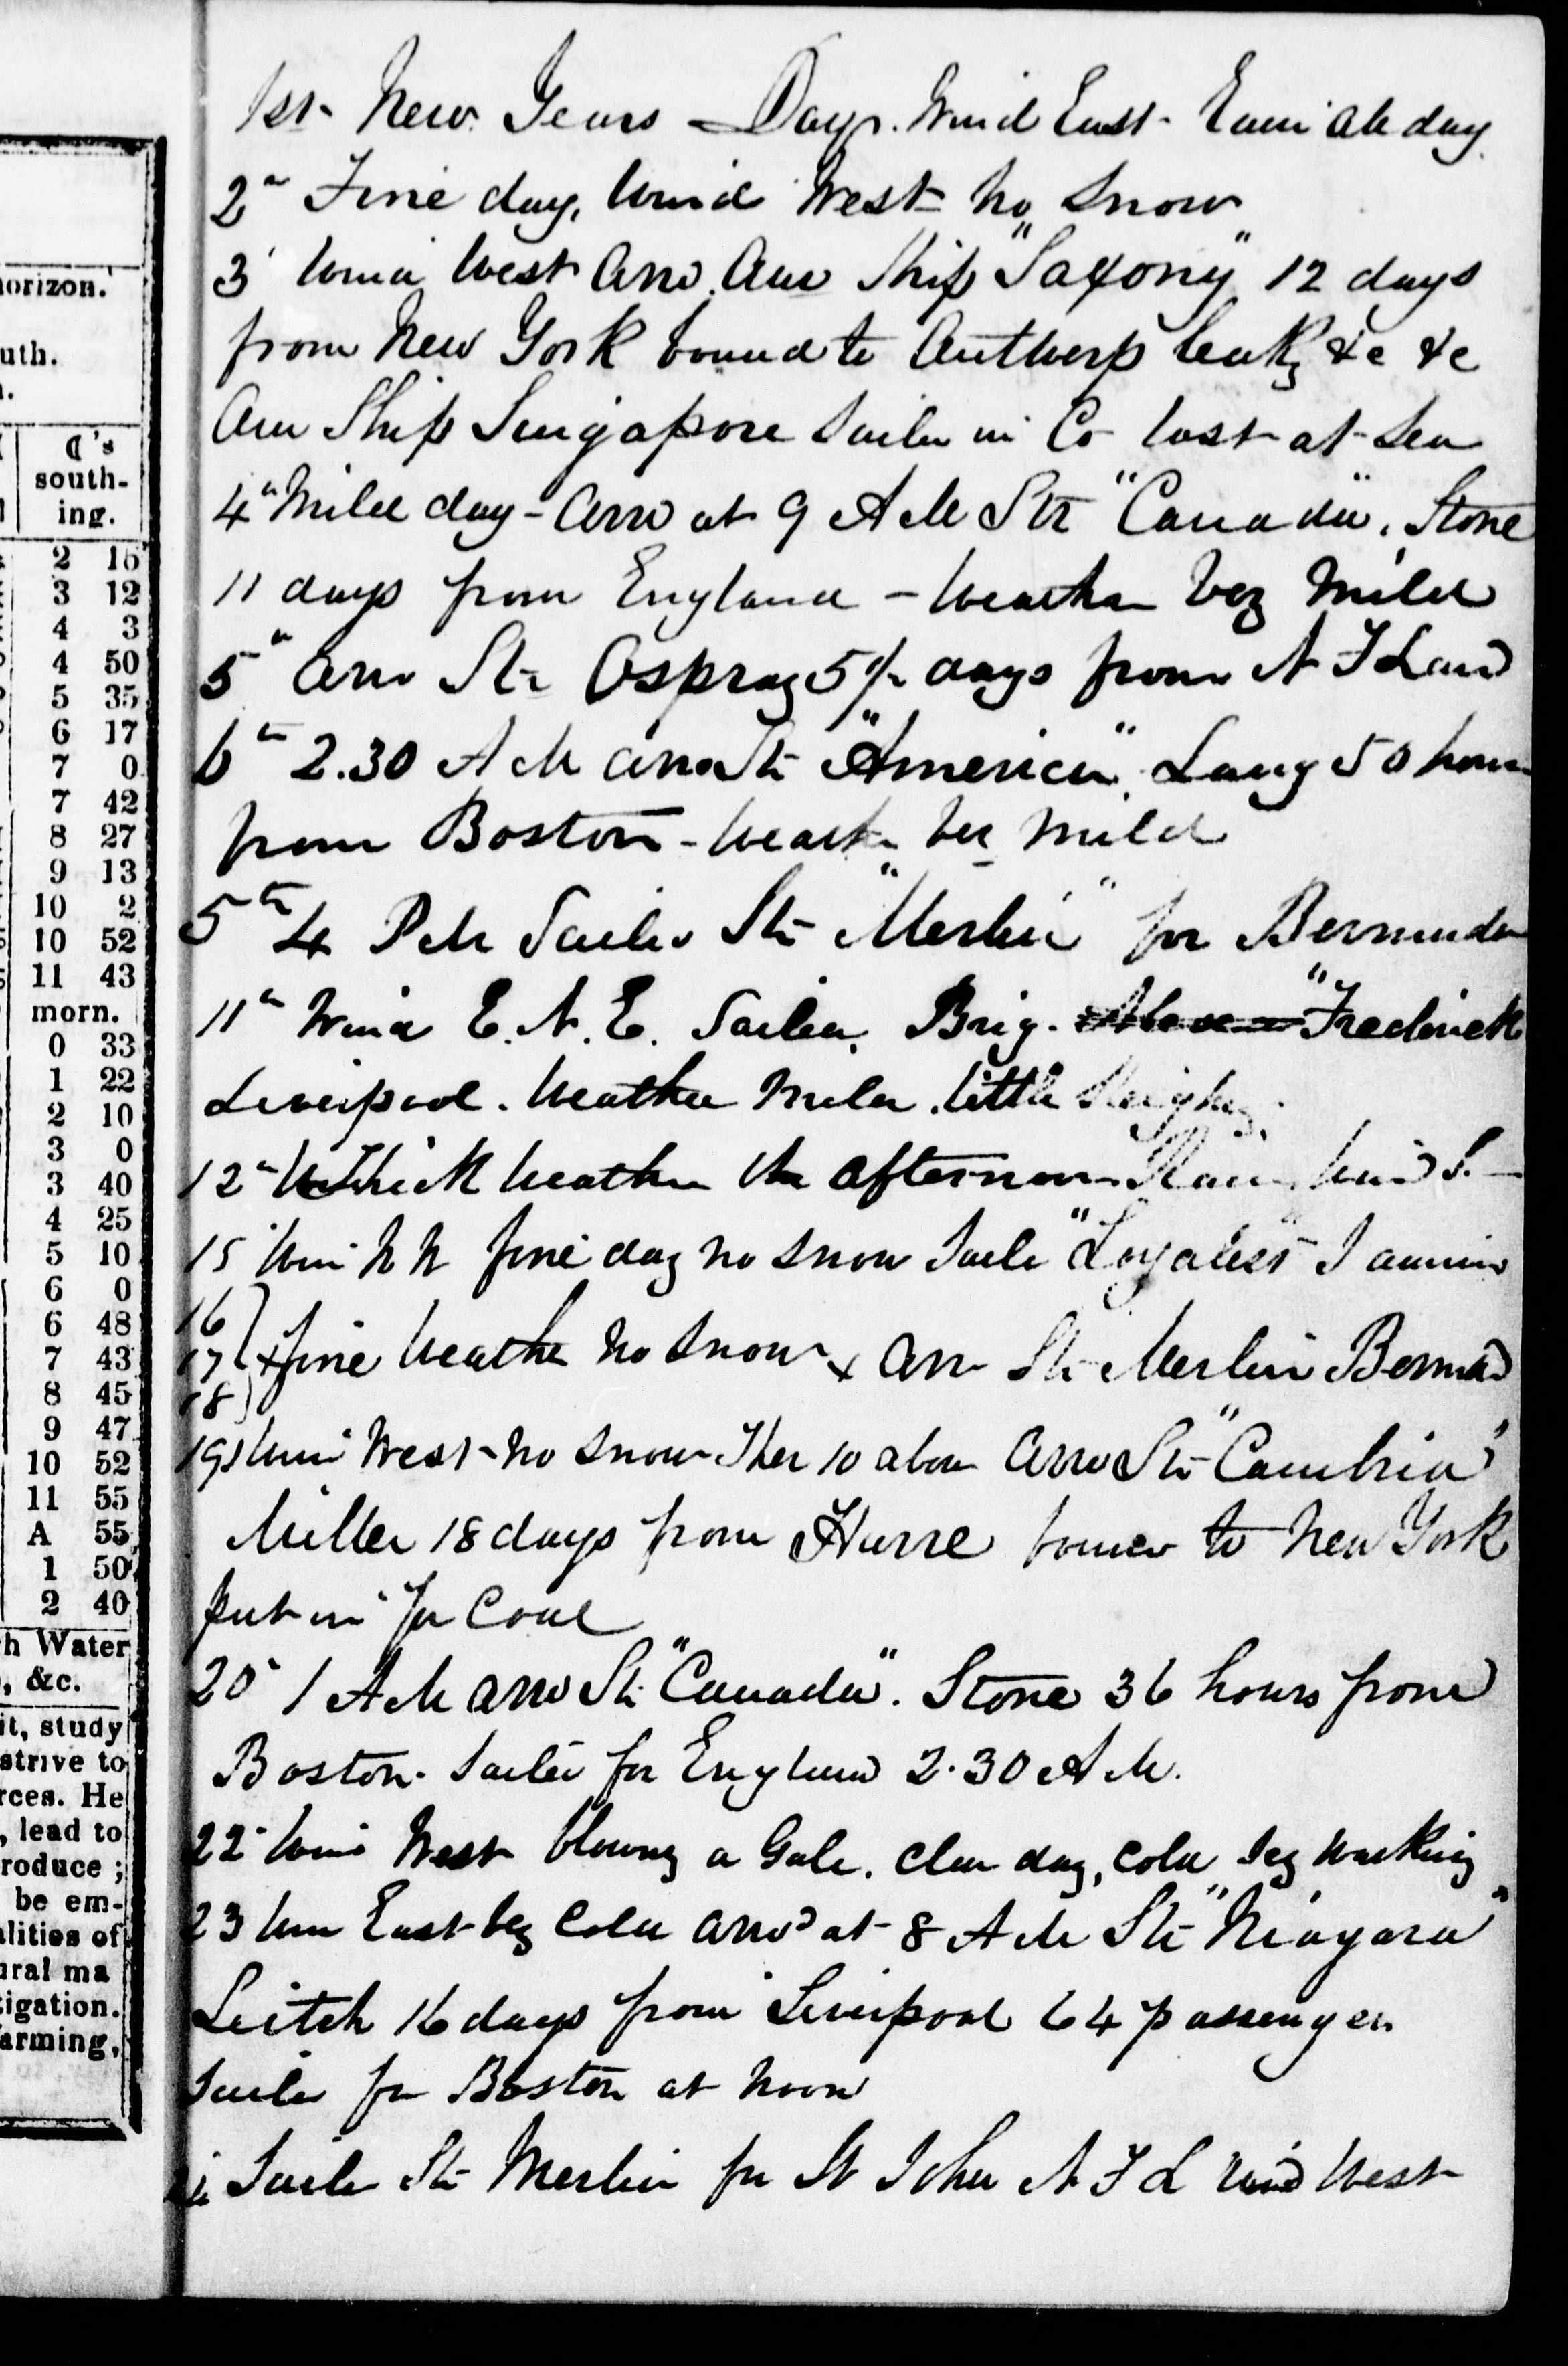 orizon.
uth.
☾'s
south-
ing.
2 15
3 12
4 3
4 50
5 35
6 17
7 0
7 42
8 27
9 13
10 2
10 52
11 43
morn.
0 33
1 22
2 10
3 0
3 40
4 25
5 10
6 0
6 48
7 43
8 45
9 47
10 52
11 55
A 55
1 50
2 40
h Water
, &c.
it, study
strive to
rces. He
, lead to
roduce ;
be em-
alities of
ural ma
tigation.
arming,
1st New Years Day. Wind East day
2d Fine day, Wind West no Snow
3d Wind West Arrd. Am Ship "Saxony" 12 days
from New York bound to Antwerp leaky &c &c
Am Ship Singapore Sailed in Co lost at Sea
4th Mild day - Arrd at 9 A M Str "Canada", Stone
11 days from England - Weather very Mild
5th Arrd Str Ospray 5½ days from N F Land
6th 2.30 A M arrd Str "America". Lang 50 hours
from Boston - Weather ver mild
5th 4 P M Sailed Str "Merlin" for Bermuda
11th Wind E. N. E. Sailed. Brig. "Frederick
Liverpool. Weather Mild. little
12th Thick Weather the afternoon Rain Wind S.
15 Win N W fine day no Snow Saild "Loyalist"
16
17 } + fine Weather No Snow + Arr Str Merlin Bermud
18
19th Win West - No Snow Ther 10 above Arrd Str "Cambria"
Miller 18 days from Havre bound to New York
put in for Coal
20th 1 A M arrd Str "Canada". Stone 36 hours from
Boston. Sailed for England 2.30 A M.
22d Wind West blowing a Gale. Clear day, Cold walking
23 Win East very Cold arrd at 8 A M Str "Niagara"
Leitch 16 days from Liverpool 64 passengers
Saild for Boston at Noon
Saild Str Merlin for St John N F L Wind West